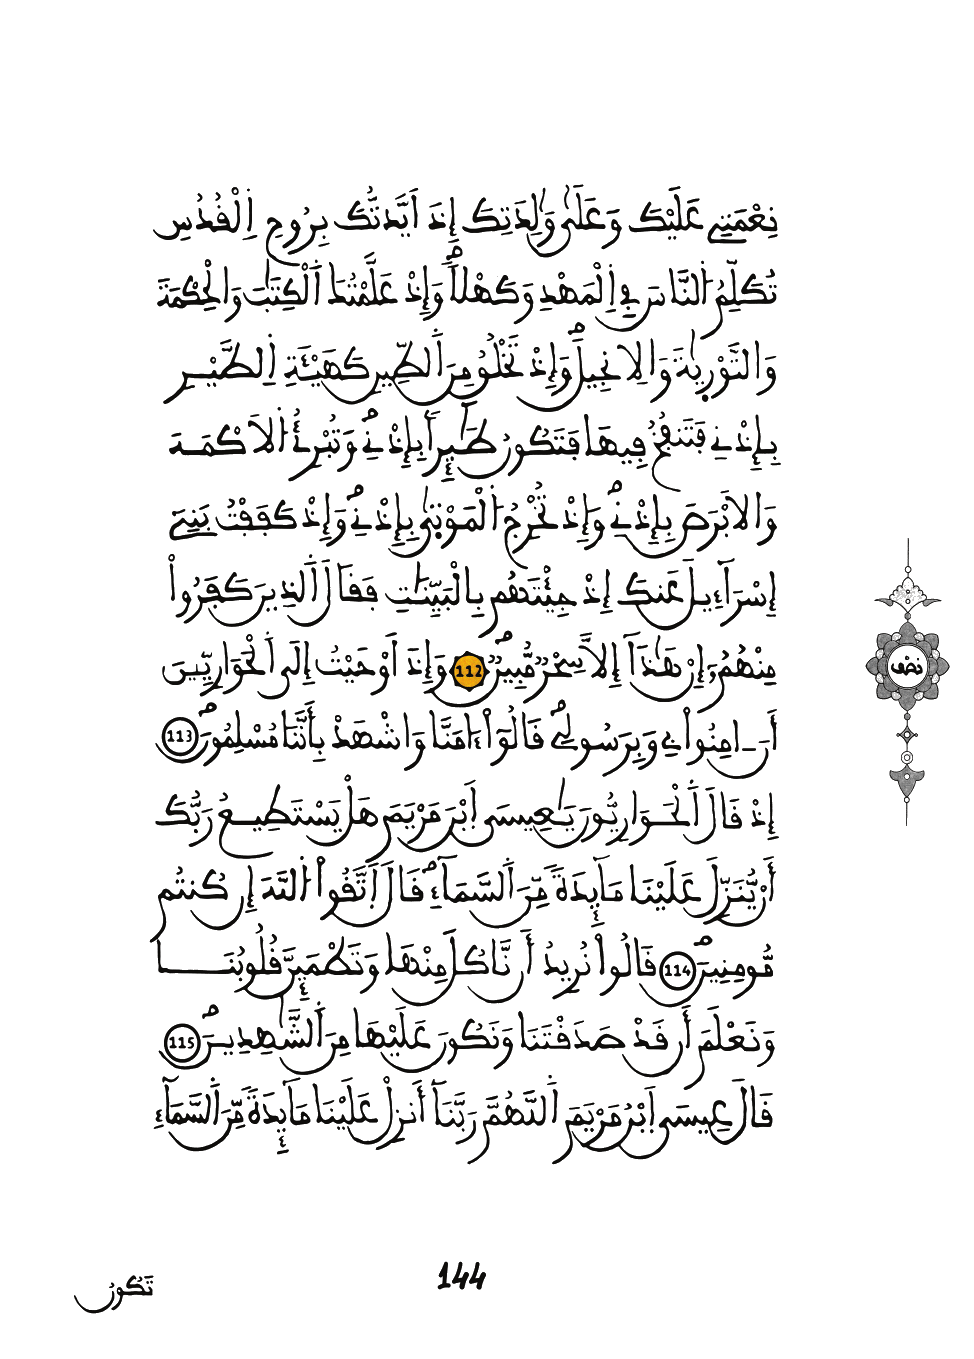 نِعْمَتِے عَلَيْكَ وَعَلَىٰ وَٰلِدَتِكَ إِذَ اَيَّدتُّكَ بِرُوحِ اِ۬لْقُدُسِ
تُكَلِّمُ اُ۬لنَّاسَ فِے اِ۬لْمَهْدِ وَكَهْلاٗۖ وَإِذْ عَلَّمْتُكَ اَ۬لْكِتَٰبَ وَالْحِكْمَةَ
وَالتَّوْر۪يٰةَ وَالِانجِيلَۖ وَإِذْ تَخْلُقُ مِنَ اَ۬لطِّينِ كَهَيْـَٔةِ اِ۬لطَّيْرِ
بِإِذْنِے فَتَنفُخُ فِيهَا فَتَكُونُ طَٰٓئِراَۢ بِإِذْنِےۖ وَتُبْرِۓُ اُ۬لَاكْمَهَ
وَالَابْرَصَ بِإِذْنِےۖ وَإِذْ تُخْرِجُ اُ۬لْمَوْت۪يٰ بِإِذْنِےۖ وَإِذْ كَفَفْتُ بَنِےٓ
إِسْرَآءِيلَ عَنكَ إِذْ جِئْتَهُم بِالْبَيِّنَٰتِ فَقَالَ اَ۬لذِينَ كَفَرُواْ
مِنْهُمُۥٓ إِنْ هَٰذَآ إِلَّا سِحْرٞ مُّبِينٞۖ 112 وَإِذَ اَوْحَيْتُ إِلَى اَ۬لْحَوَارِيِّـۧنَ
أَنَ اٰمِنُواْ بِے وَبِرَسُولِےۖ قَالُوٓاْ ءَامَنَّا وَاشْهَدْ بِأَنَّنَا مُسْلِمُونَۖ 113
إِذْ قَالَ اَ۬لْحَوَارِيُّونَ يَٰعِيسَى اَ۪بْنَ مَرْيَمَ هَلْ يَسْتَطِيعُ رَبُّكَ
أَنْ يُّنَزِّلَ عَلَيْنَا مَآئِدَةٗ مِّنَ اَ۬لسَّمَآءِۖ قَالَ اَ۪تَّقُواْ اُ۬للَّهَ إِن كُنتُم
مُّومِنِينَۖ 114 قَالُواْ نُرِيدُ أَن نَّاكُلَ مِنْهَا وَتَطْمَئِنَّ قُلُوبُنَا
وَنَعْلَمَ أَن قَدْ صَدَقْتَنَا وَنَكُونَ عَلَيْهَا مِنَ اَ۬لشَّٰهِدِينَۖ 115
قَالَ عِيسَى اَ۪بْنُ مَرْيَمَ اَ۬للَّهُمَّ رَبَّنَآ أَنزِلْ عَلَيْنَا مَآئِدَةٗ مِّنَ اَ۬لسَّمَآءِ
نصف
144
تَكُونُ